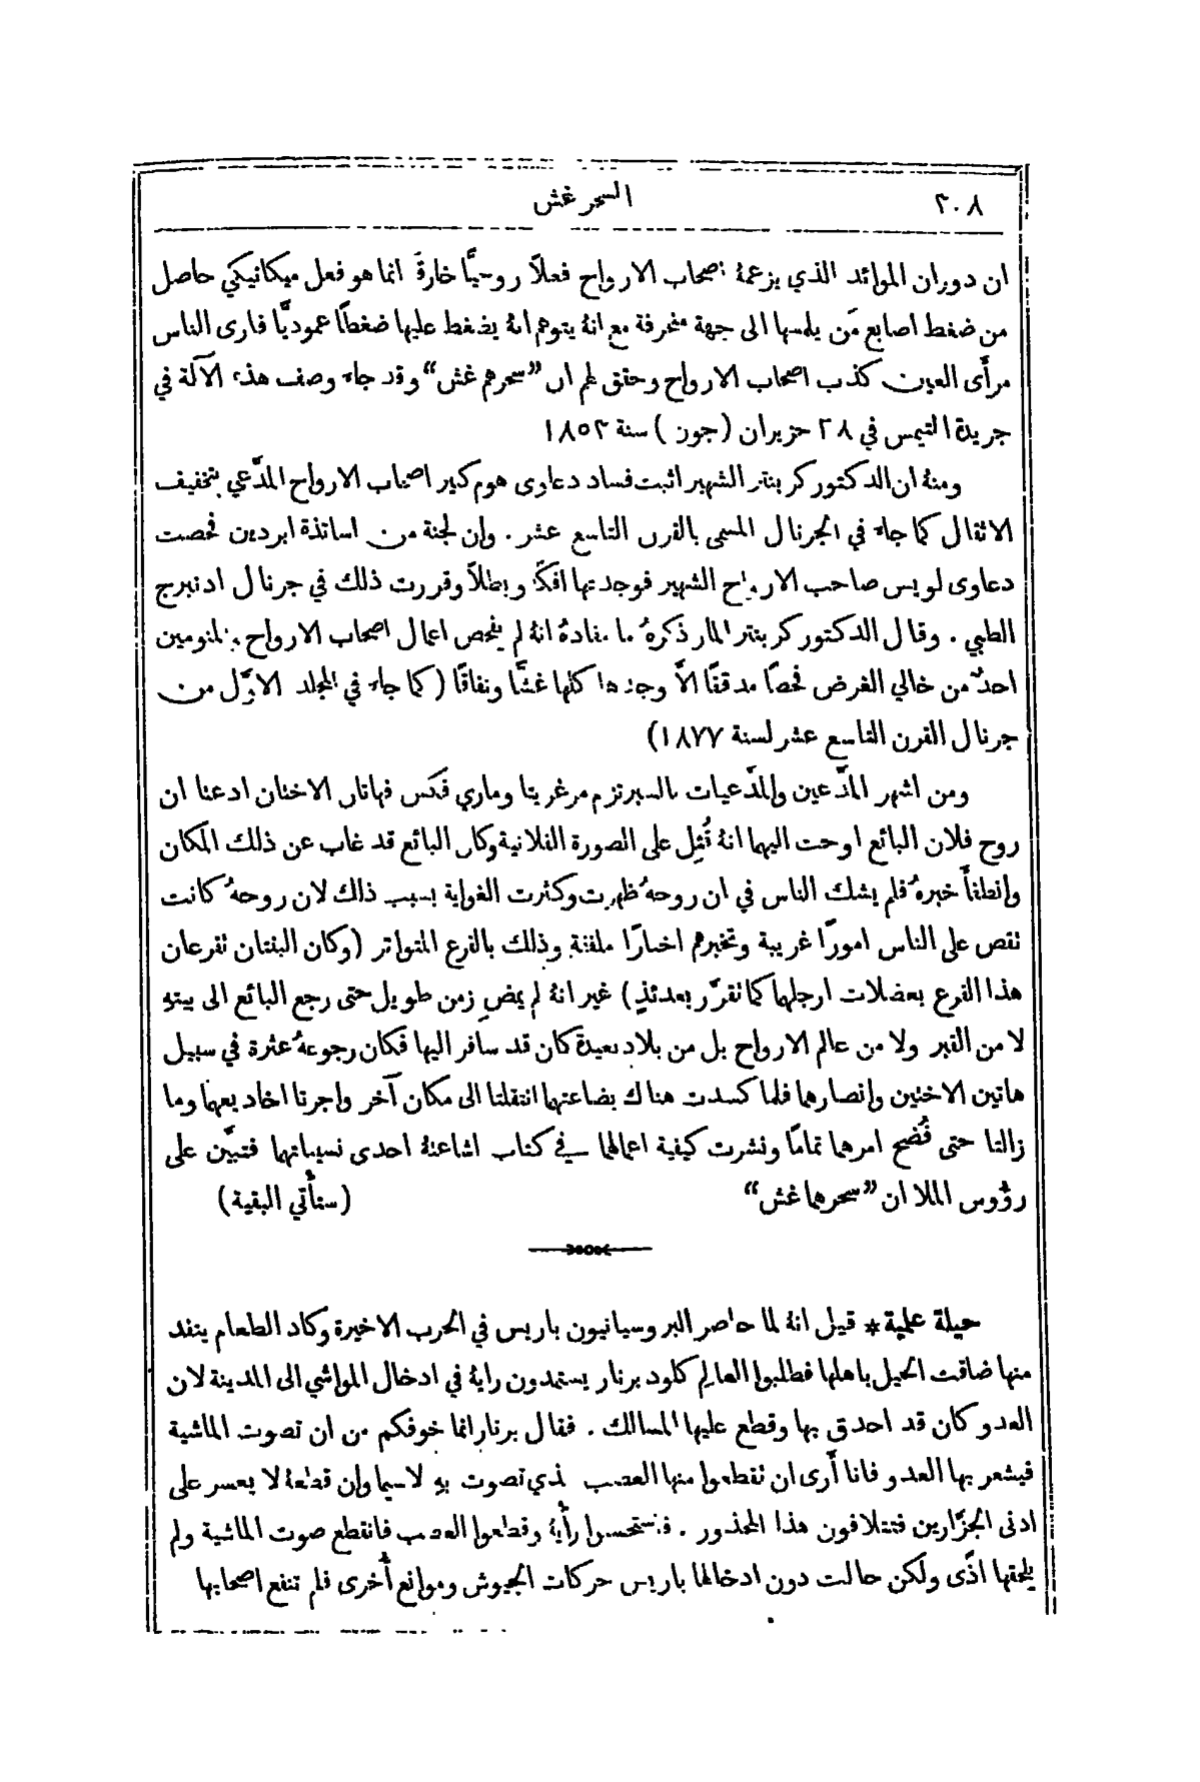 ٢٠٨
السحر غش
ان دوران الموائد الذي يزعمهُ اصحاب الارواح فعلاً روحيًّا خارقًا انما هو فعل ميكانيكي حاصل
من ضغط اصابع مَن يلمسها الى جهة منحرفة مع انهُ يتوهم انهُ يضغط عليها ضغطًا عموديًّا فارى الناس
مرأَى العين كذب اصحاب الارواح وحقق لهم ان ”سحرهم غش“ وقد جاء وصف هذه الآلة في
جريدة التيمس في ٢٨ حزيران (جون) سنة ١٨٥٣
ومنهُ ان الدكتور كربنتر الشهير اثبت فساد دعاوى هوم كبير اصحاب الارواح المدَّعي بتخفيف
الاثقال كما جاء في الجرنال المسمى بالقرن التاسع عشر . وان لجنة من اساتذة ابردين فحصت
دعاوى لويس صاحب الارواح الشهير فوجدتها افكًا وبطلاً وقررت ذلك في جرنال ادنبرج
الطبي . وقال الدكتور كربنتر المار ذكرهُ ما مفادهُ انهُ لم يفحص اعمال اصحاب الارواح والمنومين
احدٌ من خالي الغرض فحصًا مدققًا الاَّ وجدها كلها غشًّا ونفاقًا (كما جاء في المجلد الاوَّل من
جرنال القرن التاسع عشر لسنة ١٨٧٧)
ومن اشهر المدَّعين والمدَّعيات بالسبرتزم مرغريتا وماري فكس فهاتان الاختان ادعتا ان
روح فلان البائع اوحت اليهما انهُ قُتِل على الصورة الفلانية وكان البائع قد غاب عن ذلك المكان
وانطفأَ خبرهُ فلم يشك الناس في ان روحهُ ظهرت وكثرت الغواية بسبب ذلك لان روحهُ كانت
تقص على الناس امورًا غريبة وتخبرهم اخبارًا ملفقة وذلك بالقرع المتواتر (وكان البنتان تقرعان
هذا القرع بعضلات ارجلهما كما تقرَّر بعدئذٍ) غير انهُ لم يمضِ زمن طويل حتى رجع البائع الى بيتهِ
لا من القبر ولا من عالم الارواح بل من بلاد بعيدة كان قد سافر اليها فكان رجوعهُ عثرة في سبيل
هاتين الاختين وانصارهما فلما كسدت هناك بضاعتهما انتقلتا الى مكان آخر واجرتا اخاديعهما وما
زالتا حتى فُضح امرهما تمامًا ونشرت كيفية اعمالهما في كتاب اشاعتهُ احدى نسيباتهما فتبيَّن على
رؤُوس الملا ان ”سحرهما غش“ (ستأْتي البقية)
حيلة علمية * قيل انهُ لما حاصر البروسيانيون باريس في الحرب الاخيرة وكاد الطعام ينفد
منها ضاقت الحيل باهلها فطلبوا العالِم كلود برنار يستمدون رايهُ في ادخال المواشي الى المدينة لان
العدو كان قد احدق بها وقطع عليها المسالك . فقال برنار انما خوفكم من ان تصوت الماشية
فيشعر بها العدو فانا أَرى ان تقطعوا منها العصب الذي تصوت بهِ لا سيما وان قطعهُ لا يعسر على
ادنى الجزَّارين فتتلافون هذا المحذور . فاستحسنوا رأْيهُ وقطعوا العصب فانقطع صوت الماشية ولم
يلحقها اذًى ولكن حالت دون ادخالها باريس حركات الجيوش وموانع أُخرى فلم تنفع اصحابها